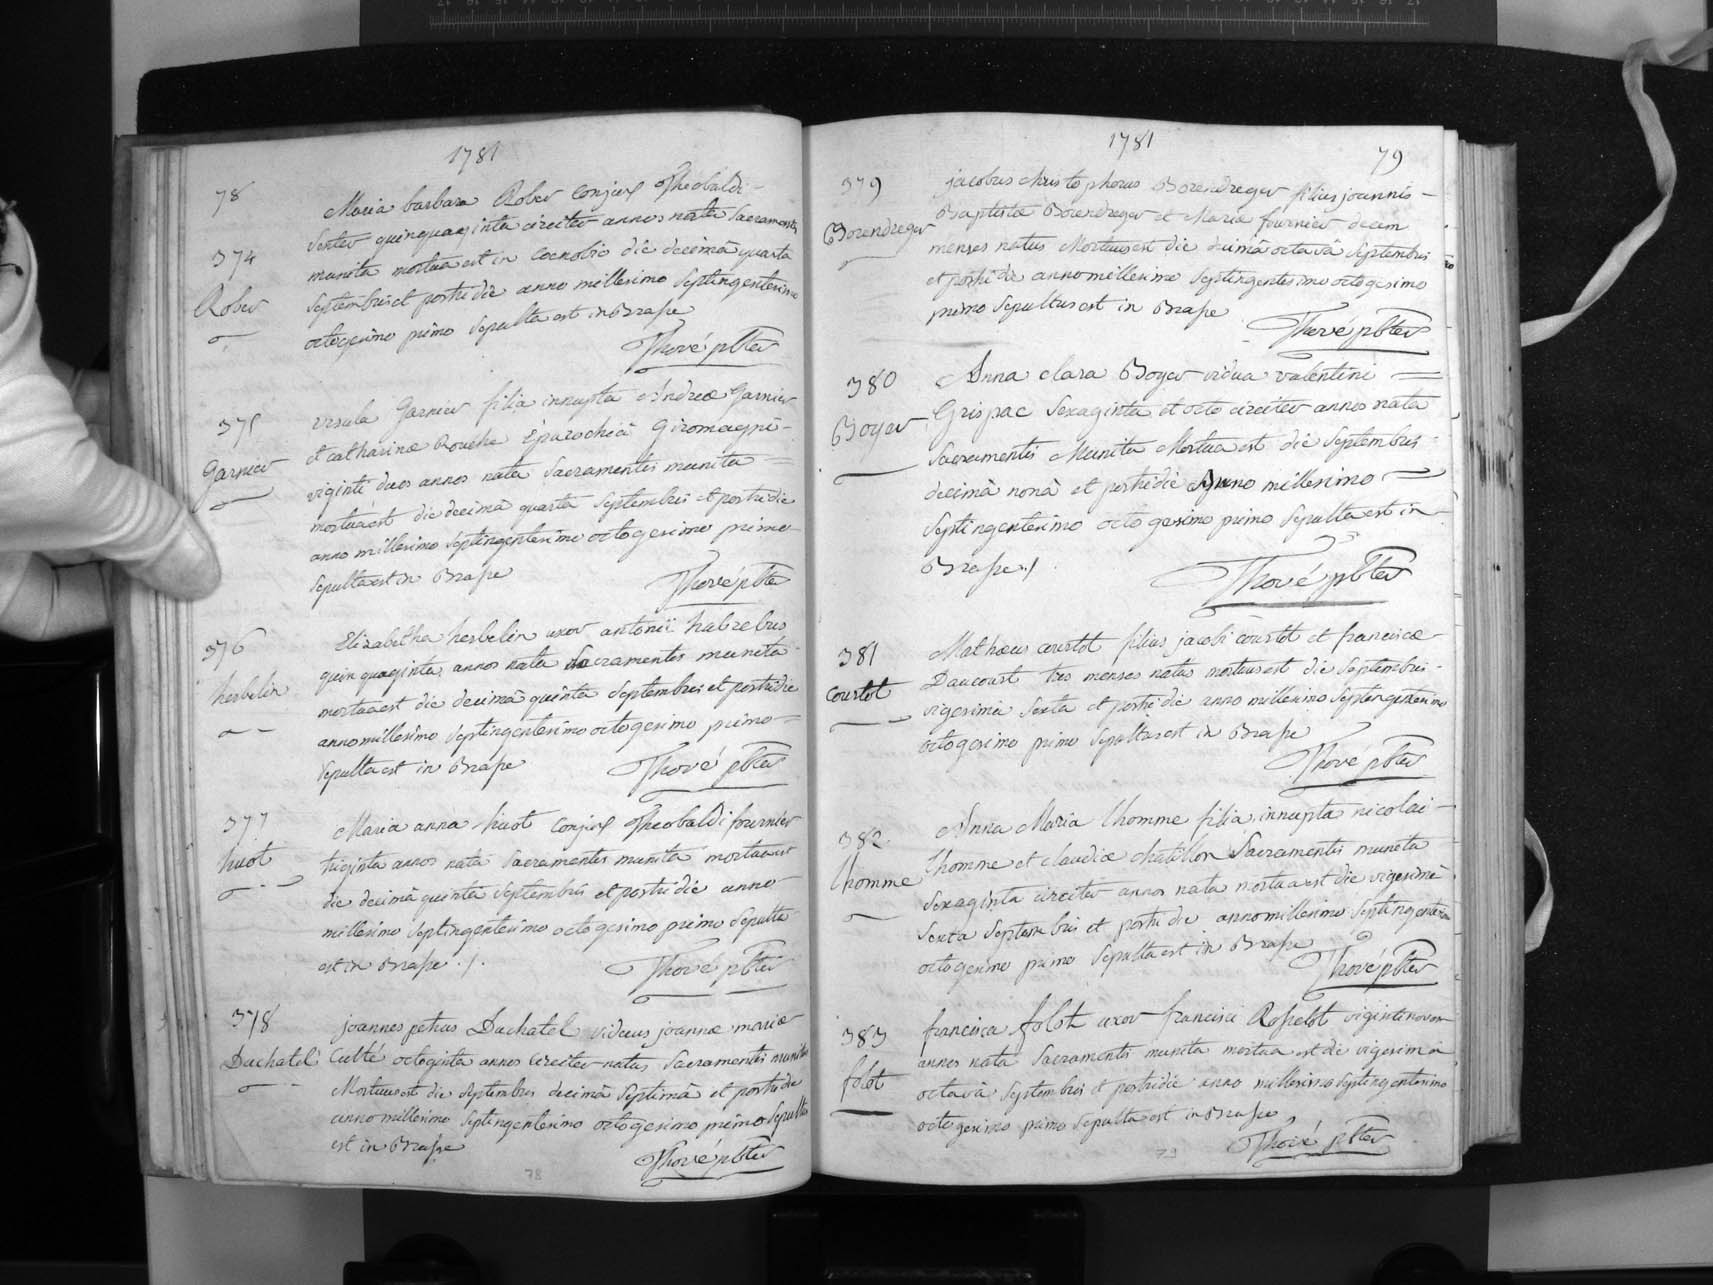 1781
78
374
Rober
Maria barbara Rober conjux Theobaldi
Senter quinquaginta circiter annos nata Sacramentis
munita mortua est in Coenobio die decimâ quarta
Septembris et postridie anno millesimo Septingentesimo
octogesimo primo Sepulta est in Braße
Thové pbter
375
Garnier
Ursula Garnier filia innupta Andreæ Garnier
et catharinæ Rouche è parochiâ Giromagni
viginti duos annos nata Sacramentis munita
mortua est die decimâ quarta Septembris et postridie
anno millesimo Septingentesimo octogesimo primo
Sepulta est in Braße
Thové pbter
376
herbelin
Elizabetha herbelin uxor antonii habrebus
quinquaginta annos nata Sacramentis munita
mortua est die decimâ quinta Septembris et postridie
anno millesimo Septingentesimo octogesimo primo
Sepulta est in Braße
Thové pbter
377
huot
Maria anna huot conjux Theobaldi fournier
triginta annos nata Sacramentis munita mortua est
die decimâ quinta Septembris et postridie anno
millesimo Septingentesimo octogesimo primo Sepulta
est in Braße ./.
Thové pbter
378
Duchatel
joannes petrus Duchatel viduus joannæ mariæ
Cutté octoginta annos circiter natus Sacramentis munitus
Mortuus est die Septembris decimâ Septimâ et postridie
anno millesimo Septingentesimo octogesimo primo Sepultus
est in Braße
Thové pbter
78
1781
79
379
Borendreger
jacobus christophorus Borendreger filius joannis
Baptistæ Borendreger et Mariæ fournier decem
menses natus Mortuus est die decimâ octavâ Septembris
et postridie anno millesimo Septingentesimo octogesimo
primo Sepultus est in Braße
Thové pbter
380
Boyer
Anna clara Boyer vidua valentini
Grispac Sexaginta et octo circiter annos nata
Sacramentis Munita Mortua est die Septembris
decimâ nonâ et postridie Anno millesimo
Septingentesimo octogesimo primo Sepulta est in
Braße ./
Thové pbter
381
Courtot
Mathæus courtot filius jacobi courtot et franciscæ
Daucourt tres menses natus mortuus est die Septembris
vigesimâ Sexta et postridie anno millesimo Septingentesimo
octogesimo primo Sepultus est in Braße
Thové pbter
382
lhomme
Anna Maria lhomme filia innupta nicolai
lhomme et claudiæ chatillon Sacramentis munita
Sexaginta circiter annos nata mortua est die vigesimâ
Sexta Septembris et postridie anno millesimo Septingentesimo
octogesimo primo Sepulta est in Braße
Thové pbter
383
folot
francisca folot uxor francisci Roßelot viginti novem
annos nata Sacramentis munita mortua est die vigesimâ
octavâ Septembris et postridie anno millesimo Septingentesimo
octogesimo primo Sepulta est in Braße
Thové pbter
79